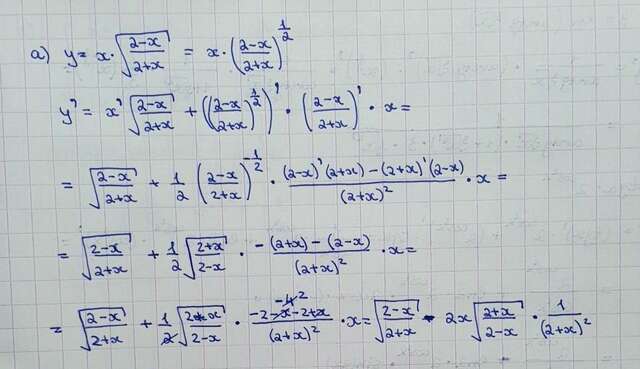 a) y = x·√((2-x)/(2+x)) = x·((2-x)/(2+x))^(1/2)
y' = x'√((2-x)/(2+x)) + (((2-x)/(2+x))^(1/2))' · ((2-x)/(2+x))' · x =
= √((2-x)/(2+x)) + 1/2 ((2-x)/(2+x))^(-1/2) · ((2-x)'(2+x) - (2+x)'(2-x))/(2+x)² · x =
= √((2-x)/(2+x)) + 1/2 √((2+x)/(2-x)) · (-(2+x) - (2-x))/(2+x)² · x =
= √((2-x)/(2+x)) + 1/2 √((2+x)/(2-x)) · (-2-x-2+x)/(2+x)² · x = √((2-x)/(2+x)) - 2x √((2+x)/(2-x)) · 1/(2+x)²